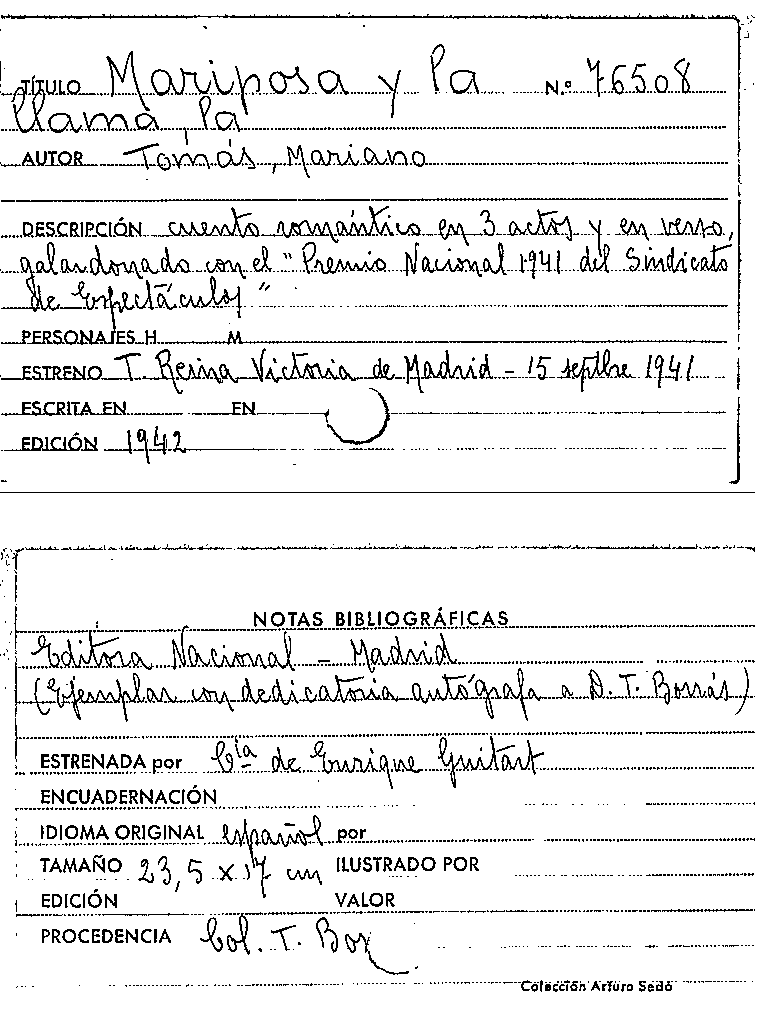 TÍTULO Mariposa y la N.º 76508
llama, la
AUTOR Tomás, Mariano
DESCRIPCIÓN cuento romántico en 3 actos y en verso,
galardonado con el "Premio Nacional 1941 del Sindicato
de Espectáculos"
PERSONAJES H M
ESTRENO T. Reina Victoria de Madrid - 15 septbre 1941
ESCRITA EN EN
EDICIÓN 1942
NOTAS BIBLIOGRÁFICAS
Editora Nacional - Madrid
(Ejemplar con dedicatoria autógrafa a D. T. Borrás)
ESTRENADA por Cía de Enrique Guitart
ENCUADERNACIÓN
IDIOMA ORIGINAL español por
TAMAÑO 23,5 x 17 cm ILUSTRADO POR
EDICIÓN VALOR
PROCEDENCIA Col. T. Bor
Colección Arturo Sedó